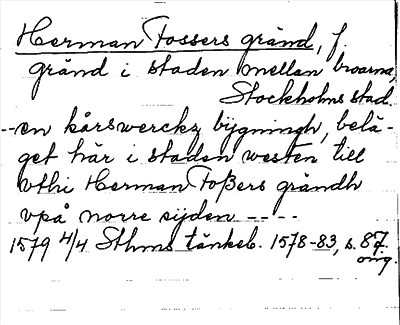 Herman Fossers gränd, f.
gränd i staden mellan broarna,
Stockholms stad.
--en kårswerckz bygningh, belä-
get här i staden westen till
vthi Herman Foßers grändh
vpå norre sijden ----
1579 4/4 Sthms tänkeb. 1578-83, s. 87.
orig.